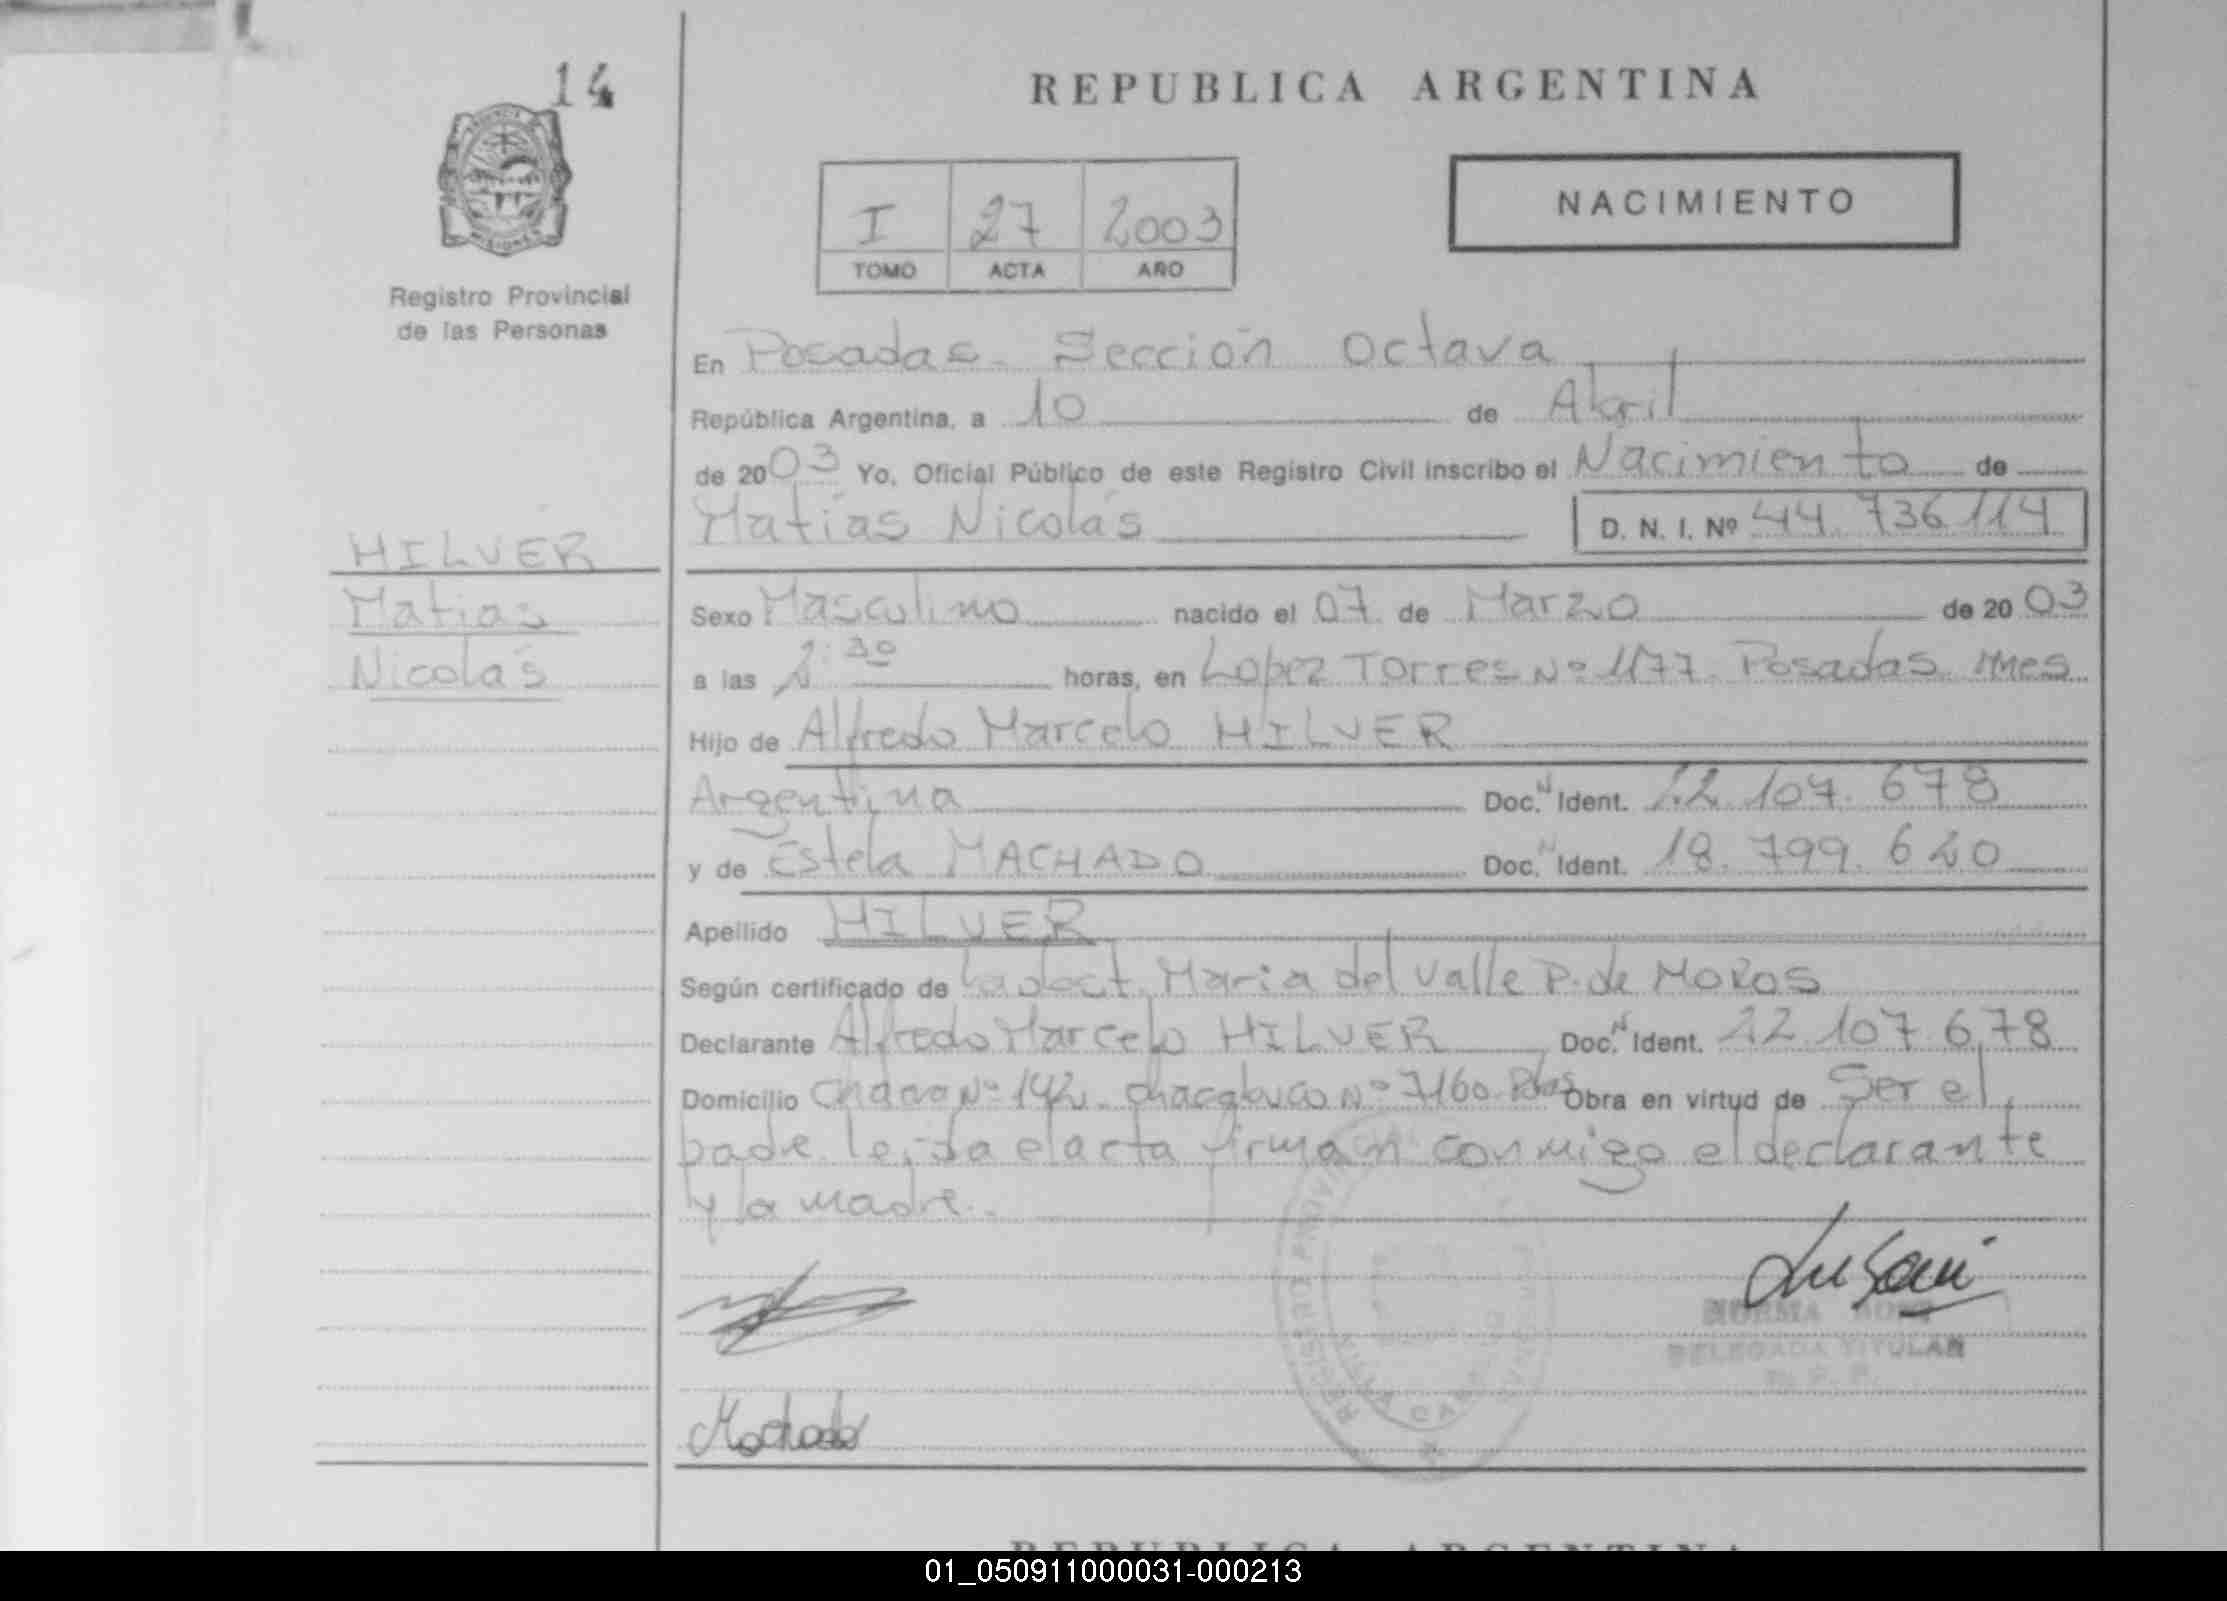 14
REPUBLICA ARGENTINA
NACIMIENTO
I 27 2003
TOMO ACTA AÑO
Registro Provincial
de las Personas
En Posadas. Sección Octava
República Argentina, a 10 de Abril
de 2003 Yo, Oficial Público de este Registro Civil inscribo el Nacimiento de
Matías Nicolás D. N. I. Nº 44.736.114
HILVER
Matías
Nicolás
Sexo Masculino nacido el 07 de Marzo de 2003
a las 2:30 horas, en Lopez Torres Nº 1177. Posadas. Mnes
Hijo de Alfredo Marcelo HILVER
Argentina Doc. N Ident. 22.107.678
y de Estela MACHADO Doc. N Ident. 18.799.620
Apellido HILVER
Según certificado de la doct. Maria del Valle P. de MOROS
Declarante Alfredo Marcelo HILVER Doc. N Ident. 22.107.678
Domicilio Chacra Nº 142. Chacabuco Nº 7160. Pdas Obra en virtud de Ser el
padre. leida el acta firman conmigo el declarante
y la madre.
Machado
NORMA
DELEGADA TITULAR
R. P. P.
REGISTRO PROVINCIAL
VILLA CABELLO
REPUBLICA ARGENTINA
01_050911000031-000213